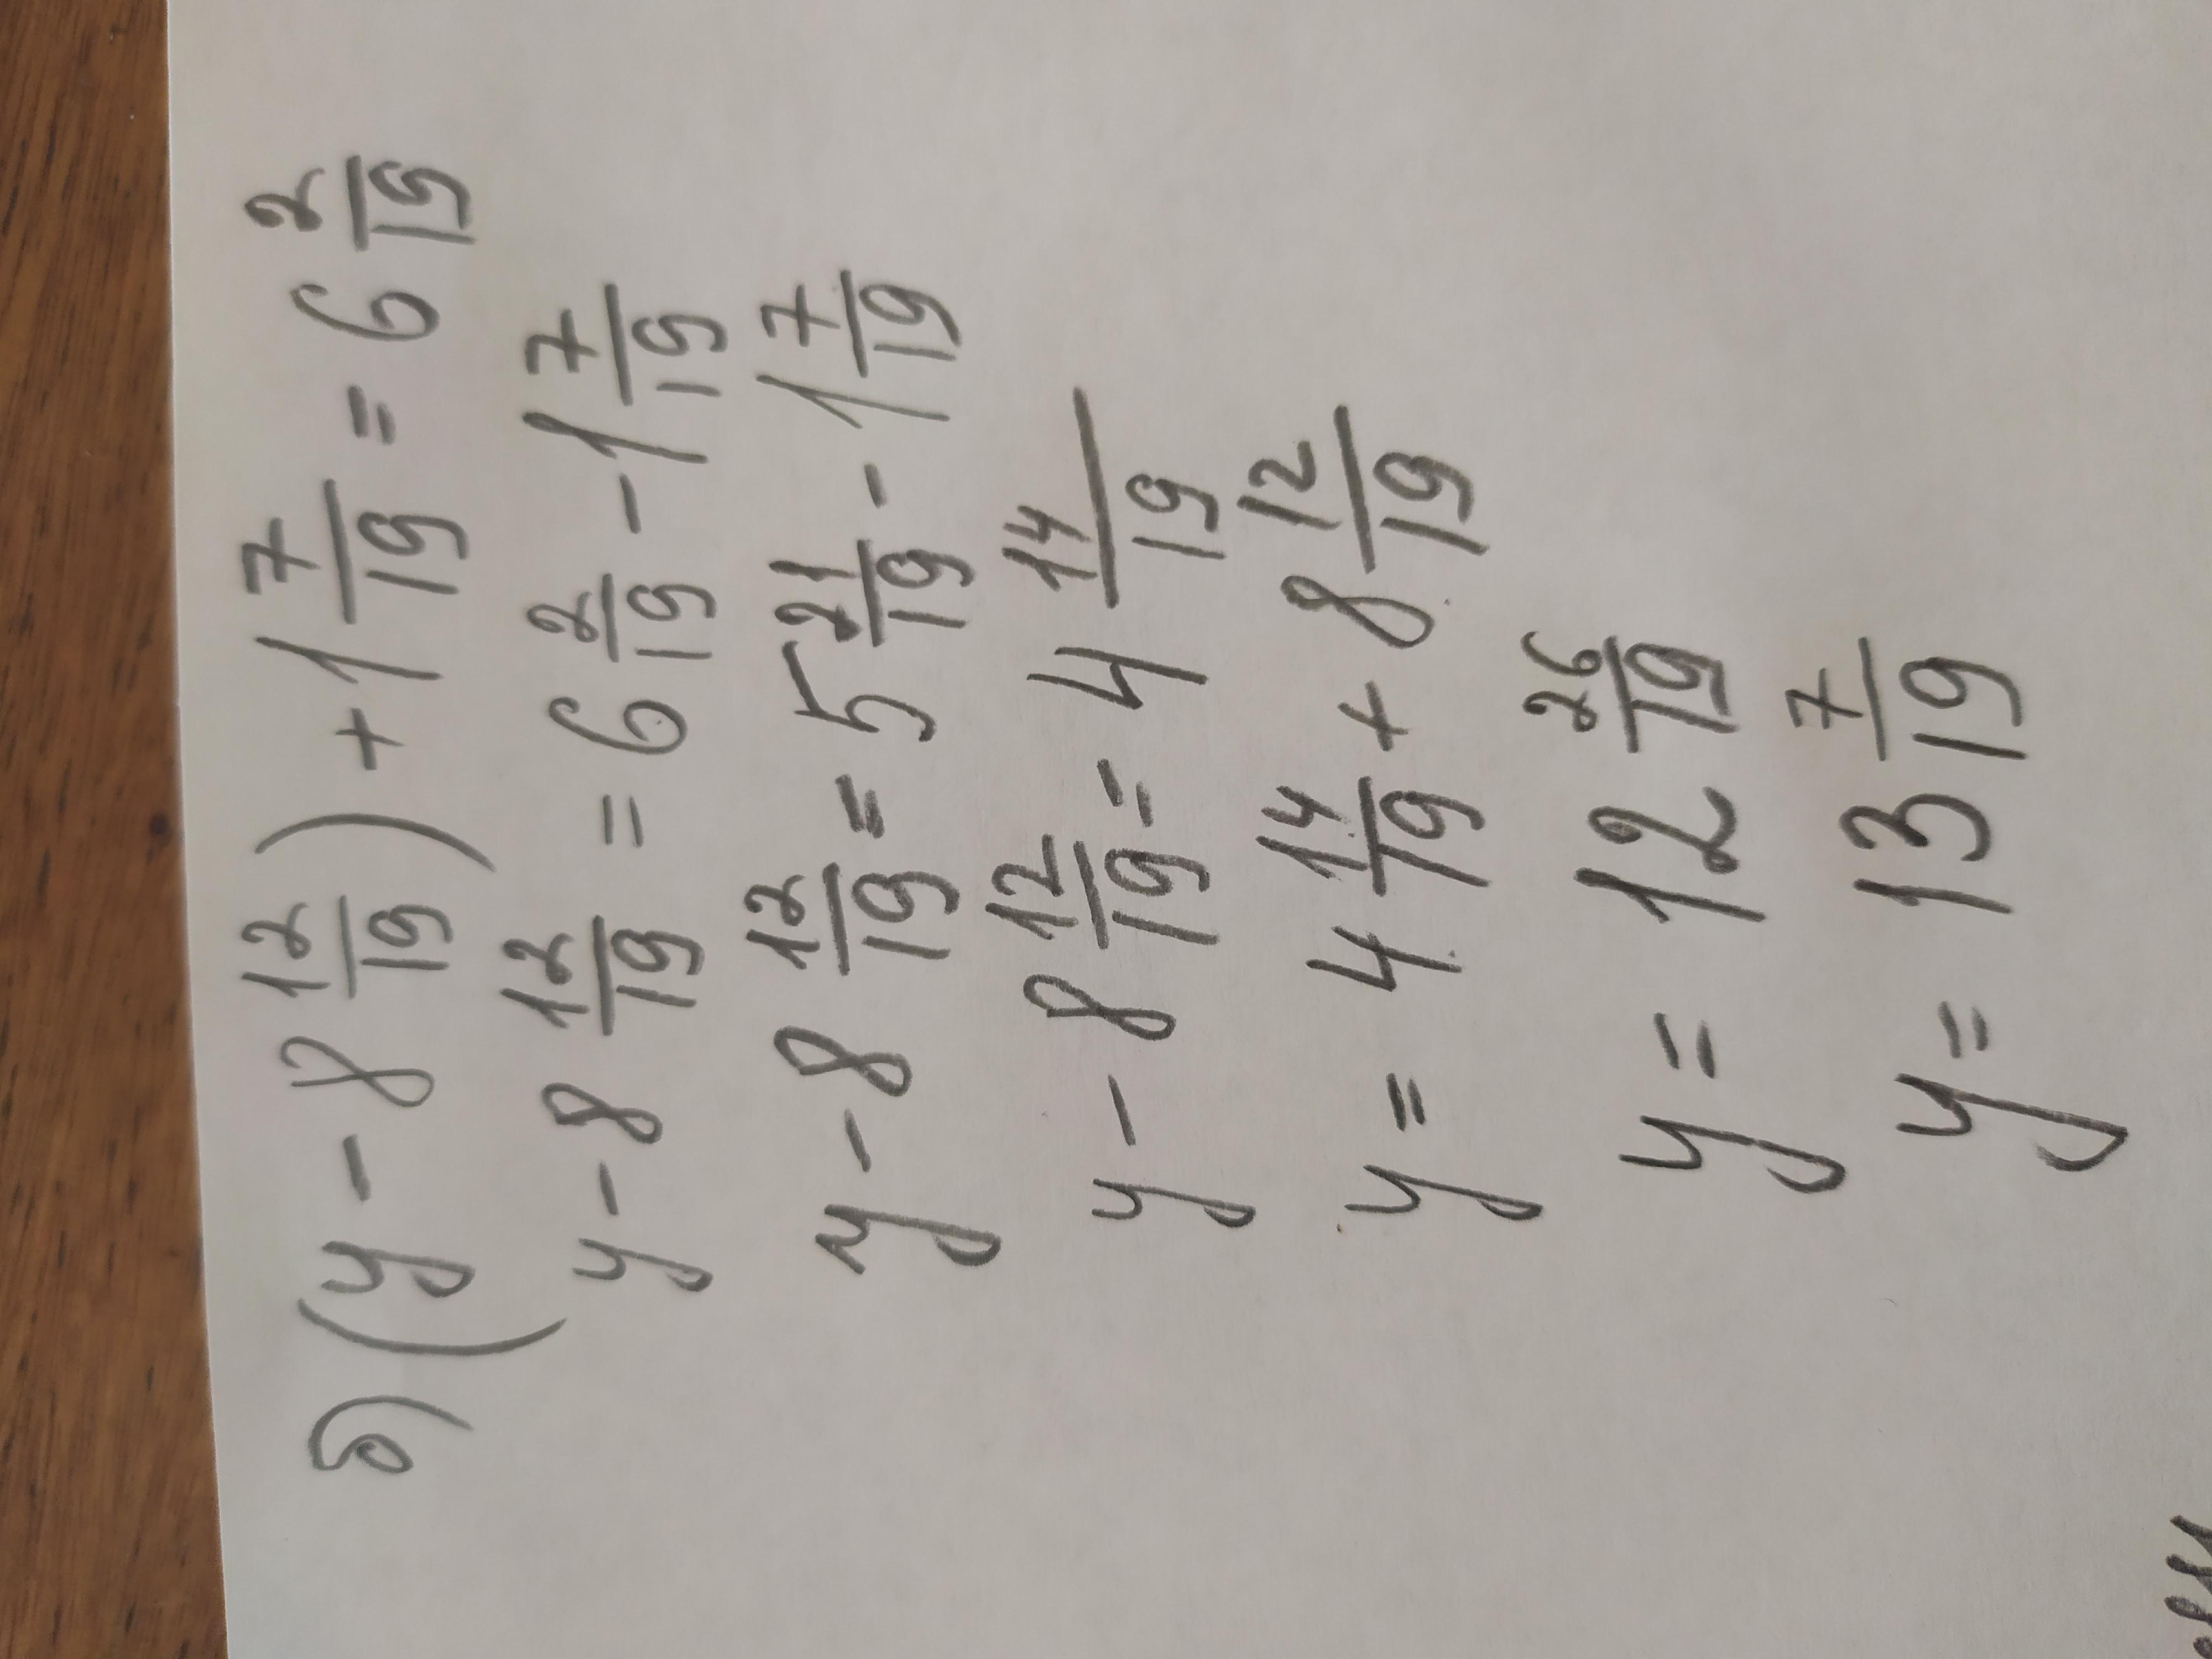 б) (y - 8 12/19) + 1 7/19 = 6 2/19
y - 8 12/19 = 6 2/19 - 1 7/19
y - 8 12/19 = 5 21/19 - 1 7/19
y - 8 12/19 = 4 14/19
y = 4 14/19 + 8 12/19
y = 12 26/19
y = 13 7/19